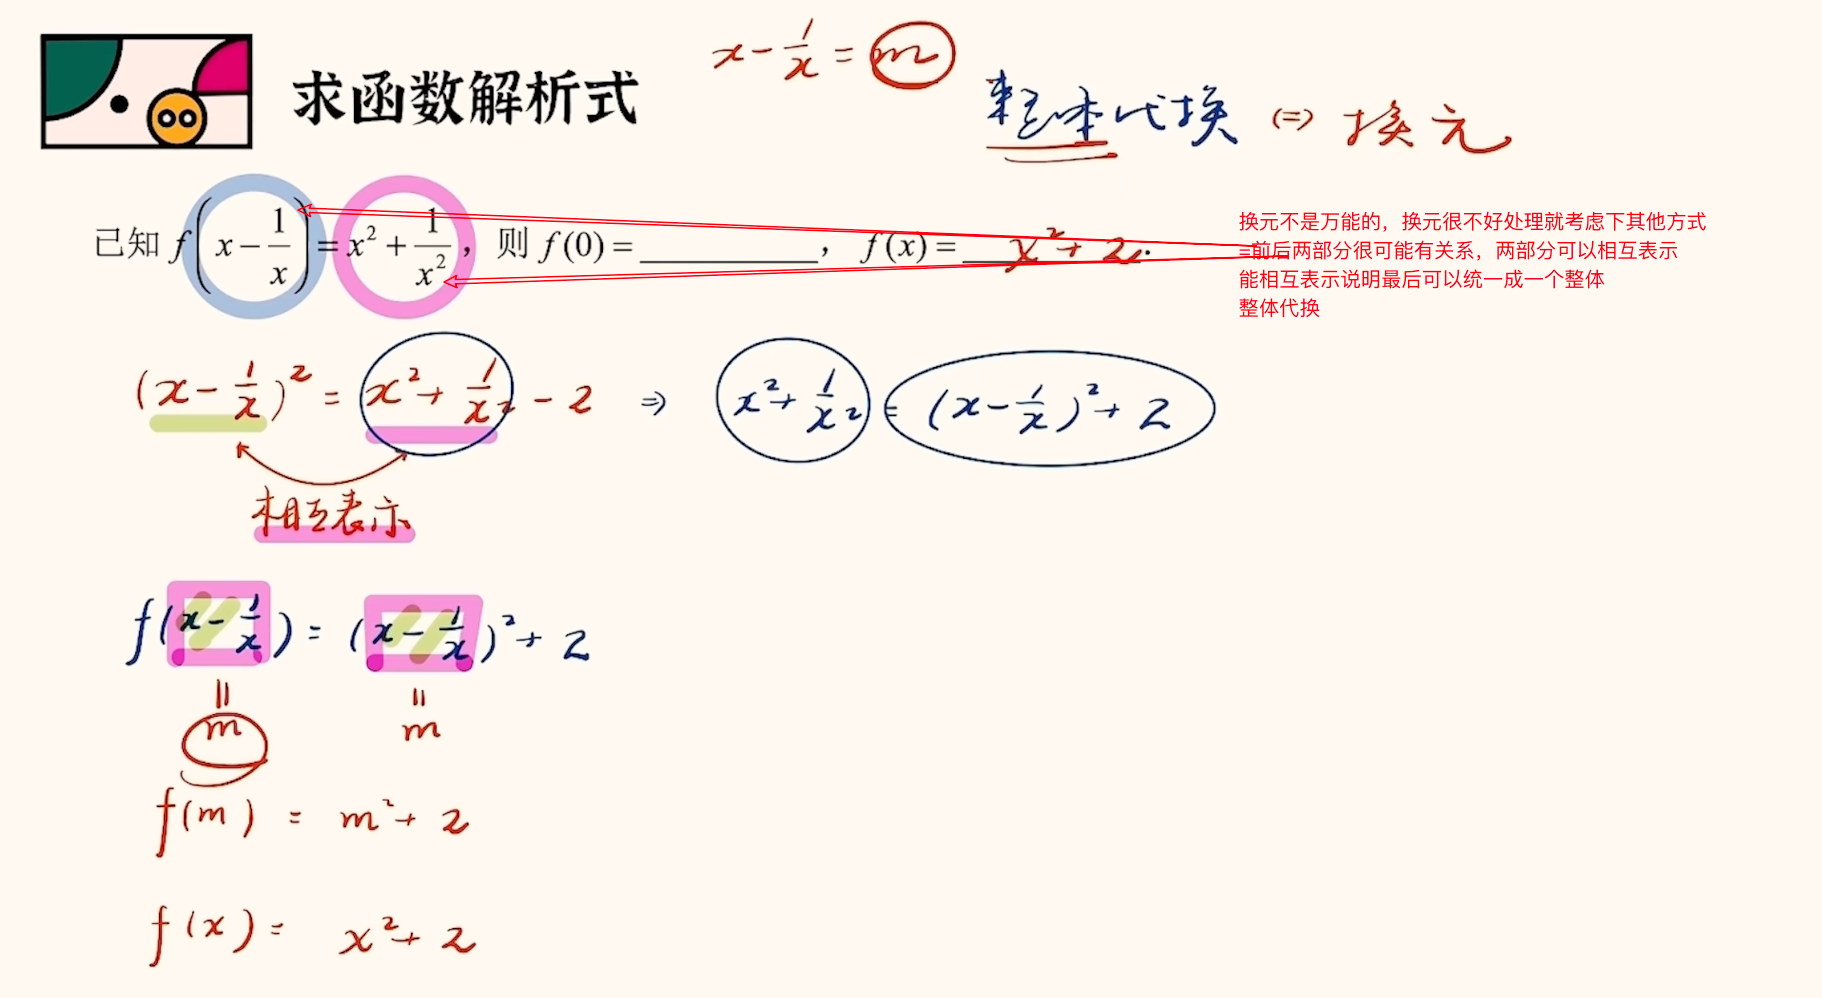 x - 1/x = m
求函数解析式
整体代换 ⇔ 换元
已知 f(x - 1/x) = x² + 1/x², 则 f(0) = ________, f(x) = x² + 2.
换元不是万能的，换元很不好处理就考虑下其他方式
=前后两部分很可能有关系，两部分可以相互表示
能相互表示说明最后可以统一成一个整体
整体代换
(x - 1/x)² = x² + 1/x² - 2 ⇒ x² + 1/x² = (x - 1/x)² + 2
相互表示
f(x - 1/x) = (x - 1/x)² + 2
= =
m m
f(m) = m² + 2
f(x) = x² + 2